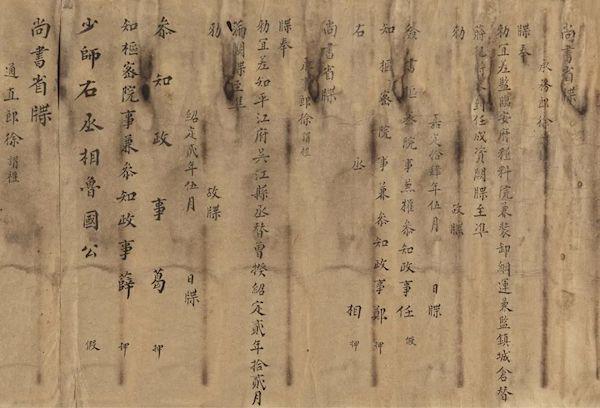 尚書省牒
承務郎徐
牒奉
勑宜差監臨安府糧料院兼裝卸綱運兼監鎮城倉替
蔣 將來到任成資闕牒至準
勑 故牒
嘉定拾肆年伍月 日牒
僉書樞密院事兼權參知政事任 假
知樞密院事兼參知政事鄭 押
右丞相 押
尚書省牒
承 郎徐謂禮
牒奉
勑宜差知平江府吳江縣丞替曹揆紹定貳年拾貳月
滿闕牒至準
勑 故牒
紹定貳年伍月 日牒
參知政事葛 押
知樞密院事兼參知政事薛 押
少師右丞相魯國公 假
尚書省牒
通直郎徐謂禮